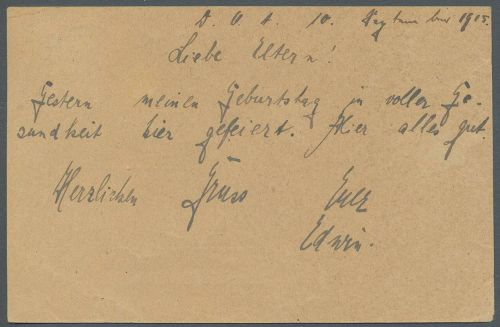 D. O. A. 10. September 1915.
Liebe Eltern!
Gestern meinen Geburtstag in voller Ge-
sundheit hier gefeiert. Hier alles gut.
Herzlichen Gruss Euer
Edwin.